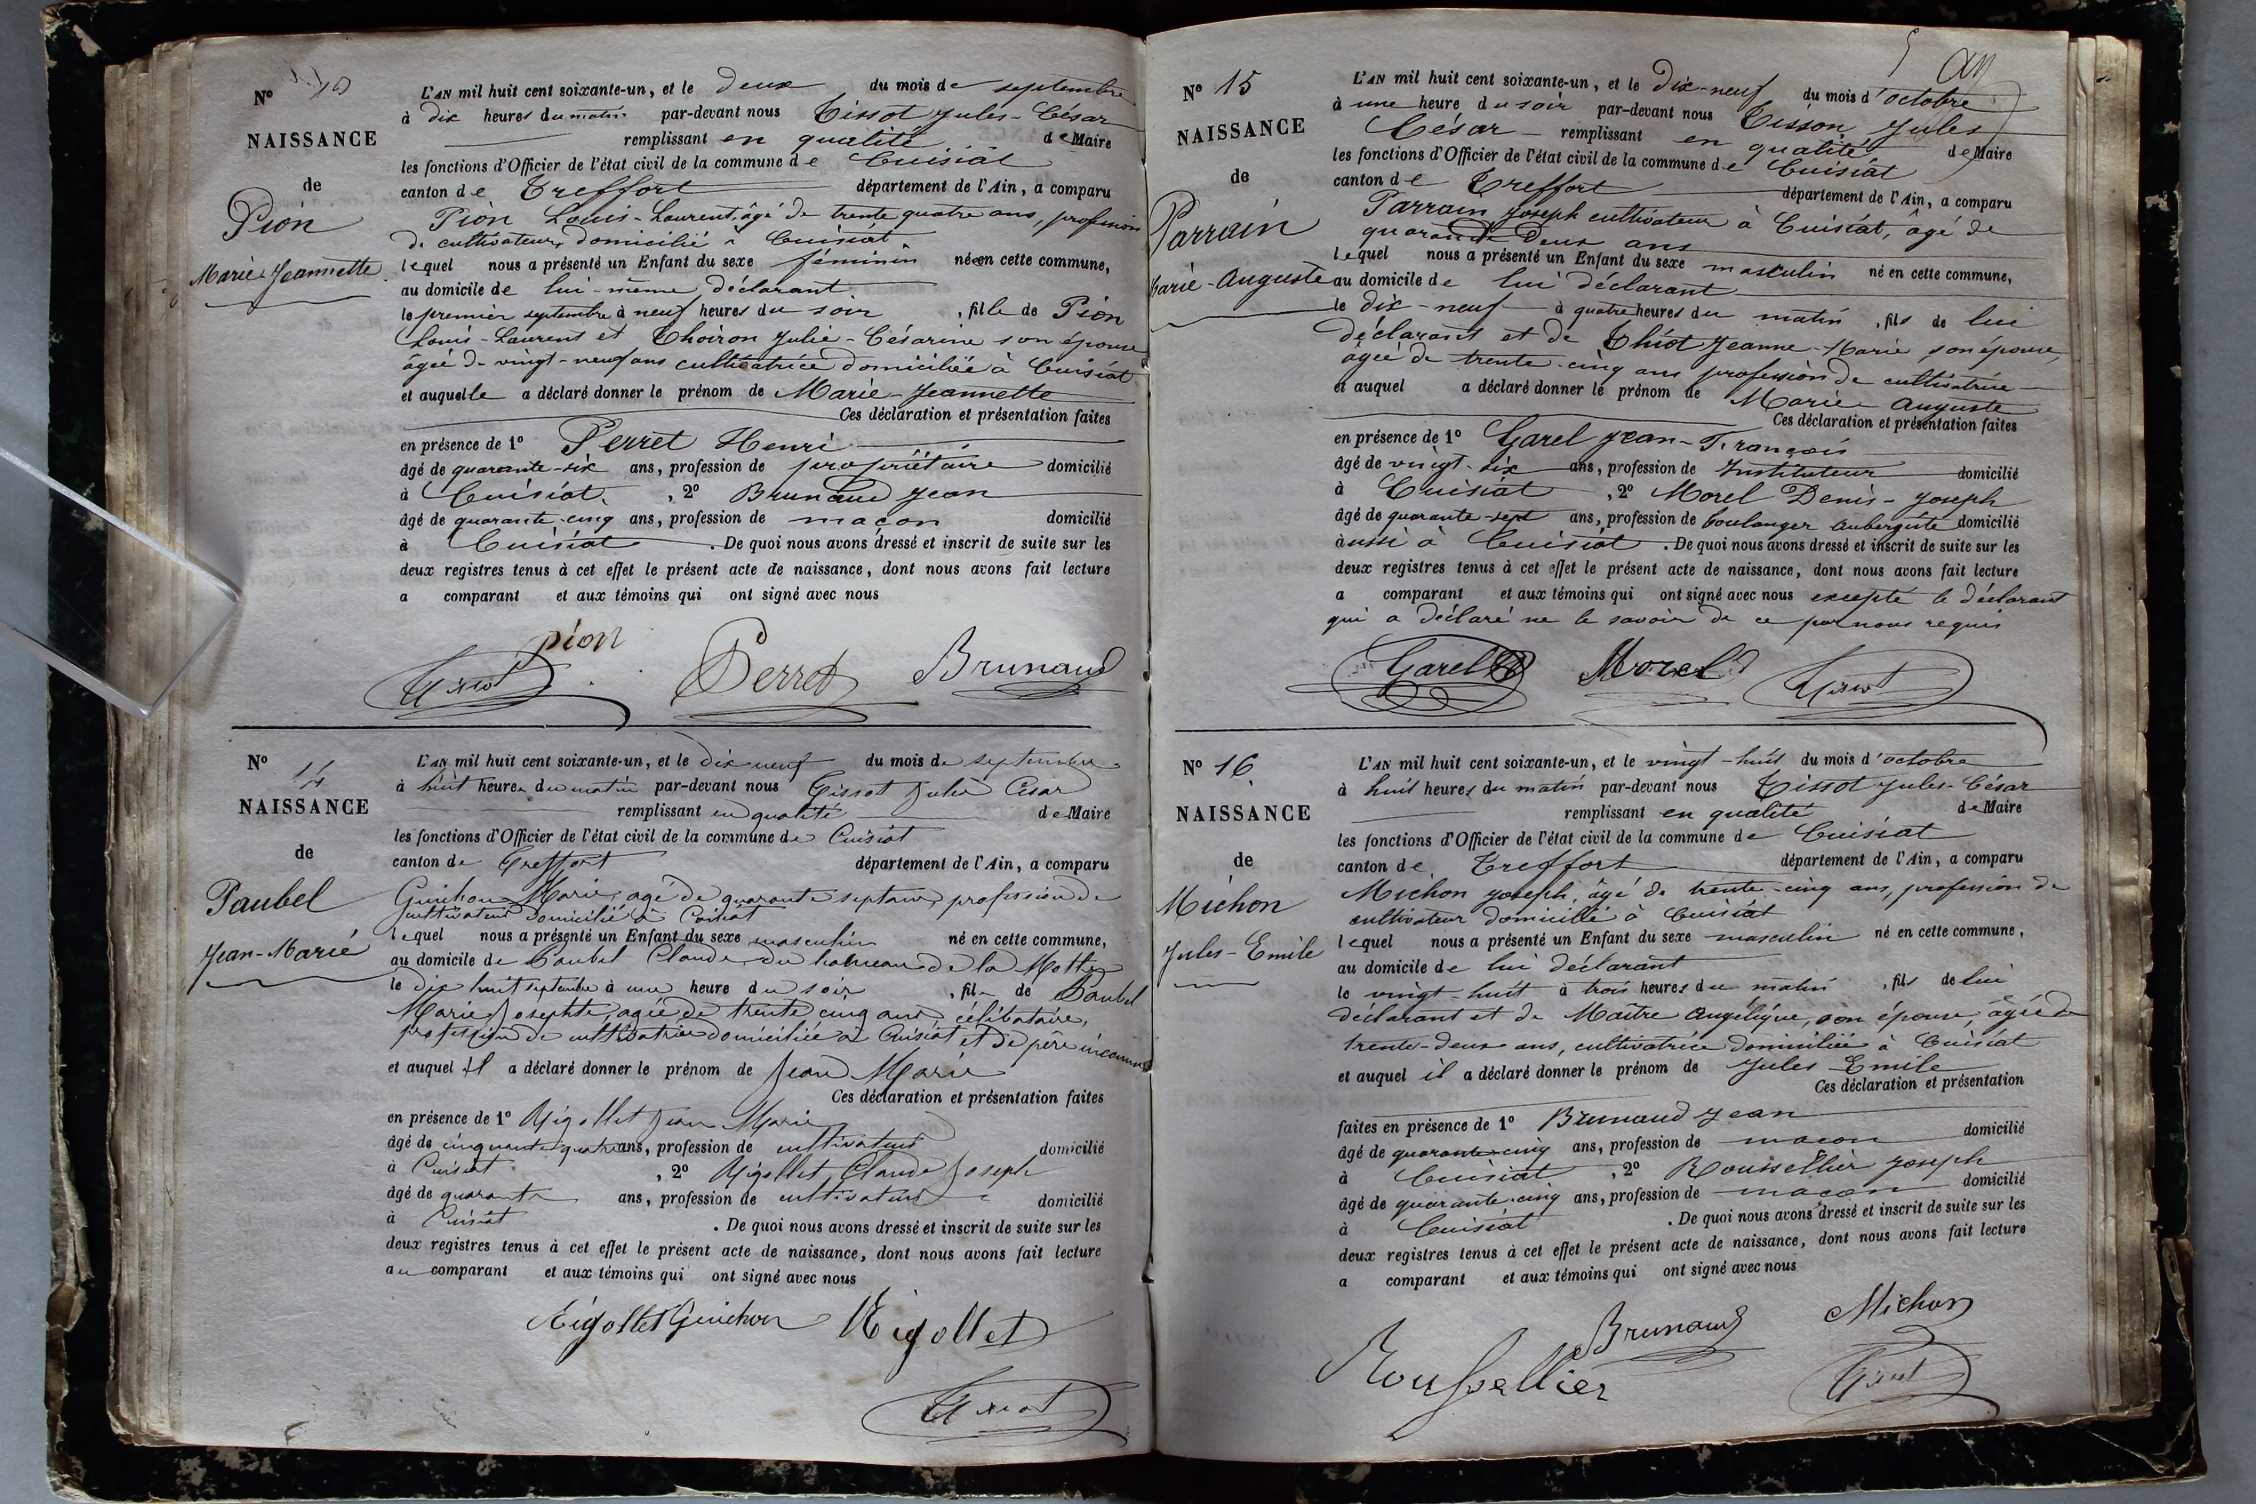 Nº 13
NAISSANCE
de
Pion
Marie Jeannette
L'AN mil huit cent soixante-un, et le deux du mois de septembre
à dix heures du matin par-devant nous Tissot Jules-César
remplissant en qualité de Maire
les fonctions d'Officier de l'état civil de la commune de Cuisiat
canton de Treffort département de l'Ain, a comparu
Pion Louis-Laurent, âgé de trente quatre ans, profession
de cultivateur, domicilié à Cuisiat
lequel nous a présenté un Enfant du sexe féminin née en cette commune,
au domicile de lui-même déclarant
le premier septembre à neuf heures du soir, fille de Pion
Louis-Laurent et Thoiron Julie-Césarine son épouse
âgée de vingt-neuf ans cultivatrice domiciliée à Cuisiat
et auquelle a déclaré donner le prénom de Marie-Jeannette
Ces déclaration et présentation faites
en présence de 1º Perret Henri
âgé de quarante-six ans, profession de propriétaire domicilié
à Cuisiat, 2º Brunaud Jean
âgé de quarante-cinq ans, profession de maçon domicilié
à Cuisiat. De quoi nous avons dressé et inscrit de suite sur les
deux registres tenus à cet effet le présent acte de naissance, dont nous avons fait lecture
a comparant et aux témoins qui ont signé avec nous
pion
Tissot Perret Brunaud
Nº 14
NAISSANCE
de
Paubel
Jean-Marie
L'AN mil huit cent soixante-un, et le dix neuf du mois de septembre
à huit heures du matin par-devant nous Tissot Jules César
remplissant en qualité de Maire
les fonctions d'Officier de l'état civil de la commune de Cuisiat
canton de Treffort département de l'Ain, a comparu
Guichon Marie, agé de quarante sept ans, profession de
cultivateur domicilié à Cuisiat
lequel nous a présenté un Enfant du sexe masculin né en cette commune,
au domicile de Paubel Claude, du hameau de la Motte
le dix huit septembre à une heure du soir, fils de Paubel
Marie Josephte, agée de trente cinq ans, célibataire,
profession de cultivatrice domiciliée à Cuisiat et de père inconnu
et auquel il a déclaré donner le prénom de Jean Marie
Ces déclaration et présentation faites
en présence de 1º Nigollet Jean Marie
âgé de cinquante quatre ans, profession de cultivateur domicilié
à Cuisiat, 2º Nigollet Claude Joseph
âgé de quarante ans, profession de cultivateur domicilié
à Cuisiat. De quoi nous avons dressé et inscrit de suite sur les
deux registres tenus à cet effet le présent acte de naissance, dont nous avons fait lecture
au comparant et aux témoins qui ont signé avec nous
Nigollet Guichon Nigollet
Tissot
5
Nº 15
NAISSANCE
de
Parrain
Marie-Auguste
L'AN mil huit cent soixante-un, et le dix-neuf du mois d'octobre
à une heure du soir par-devant nous Tisson Jules
César remplissant en qualité de Maire
les fonctions d'Officier de l'état civil de la commune de Cuisiat
canton de Treffort département de l'Ain, a comparu
Parrain Joseph cultivateur à Cuisiat, âgé de
quarante deux ans
lequel nous a présenté un Enfant du sexe masculin né en cette commune,
au domicile de lui déclarant
le dix-neuf à quatre heures du matin, fils de lui
déclarant et de Thiot Jeanne-Marie son épouse,
agée de trente-cinq ans profession de cultivatrice
et auquel a déclaré donner le prénom de Marie Auguste
Ces déclaration et présentation faites
en présence de 1º Garel Jean-François
âgé de vingt-six ans, profession de Instituteur domicilié
à Cuisiat, 2º Morel Denis-Joseph
âgé de quarante-sept ans, profession de boulanger aubergiste domicilié
aussi à Cuisiat. De quoi nous avons dressé et inscrit de suite sur les
deux registres tenus à cet effet le présent acte de naissance, dont nous avons fait lecture
a comparant et aux témoins qui ont signé avec nous excepté le déclarant
qui a déclaré ne le savoir de ce par nous requis
Garel Morel Tissot
Nº 16
NAISSANCE
de
Michon
Jules-Emile
L'AN mil huit cent soixante-un, et le vingt-huit du mois d'octobre
à huit heures du matin par-devant nous Tissot Jules-César
remplissant en qualité de Maire
les fonctions d'Officier de l'état civil de la commune de Cuisiat
canton de Treffort département de l'Ain, a comparu
Michon Joseph, âgé de trente-cinq ans, profession de
cultivateur domicilié à Cuisiat
lequel nous a présenté un Enfant du sexe masculin né en cette commune,
au domicile de lui déclarant
le vingt-huit à trois heures du matin, fils de lui
déclarant et de Maître Angélique, son épouse, âgée de
trente-deux ans, cultivatrice domiciliée à Cuisiat
et auquel il a déclaré donner le prénom de Jules Emile
Ces déclaration et présentation
faites en présence de 1º Brunaud Jean
âgé de quarante-cinq ans, profession de maçon domicilié
à Cuisiat, 2º Rousseillier Joseph
âgé de quarante-cinq ans, profession de maçon domicilié
à Cuisiat. De quoi nous avons dressé et inscrit de suite sur les
deux registres tenus à cet effet le présent acte de naissance, dont nous avons fait lecture
a comparant et aux témoins qui ont signé avec nous
Brunaud Michon
Roussellier Tissot